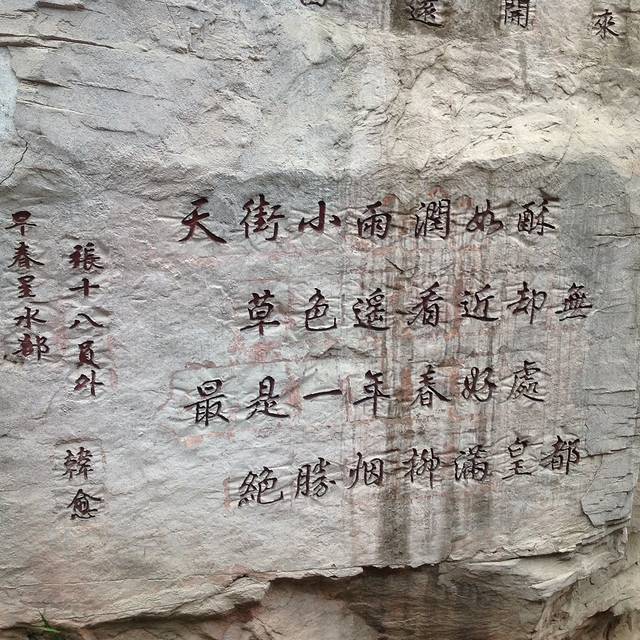 開 來
早春呈水部
張十八員外 韓愈
天街小雨潤如酥
草色遙看近却無
最是一年春好處
絕勝烟柳滿皇都